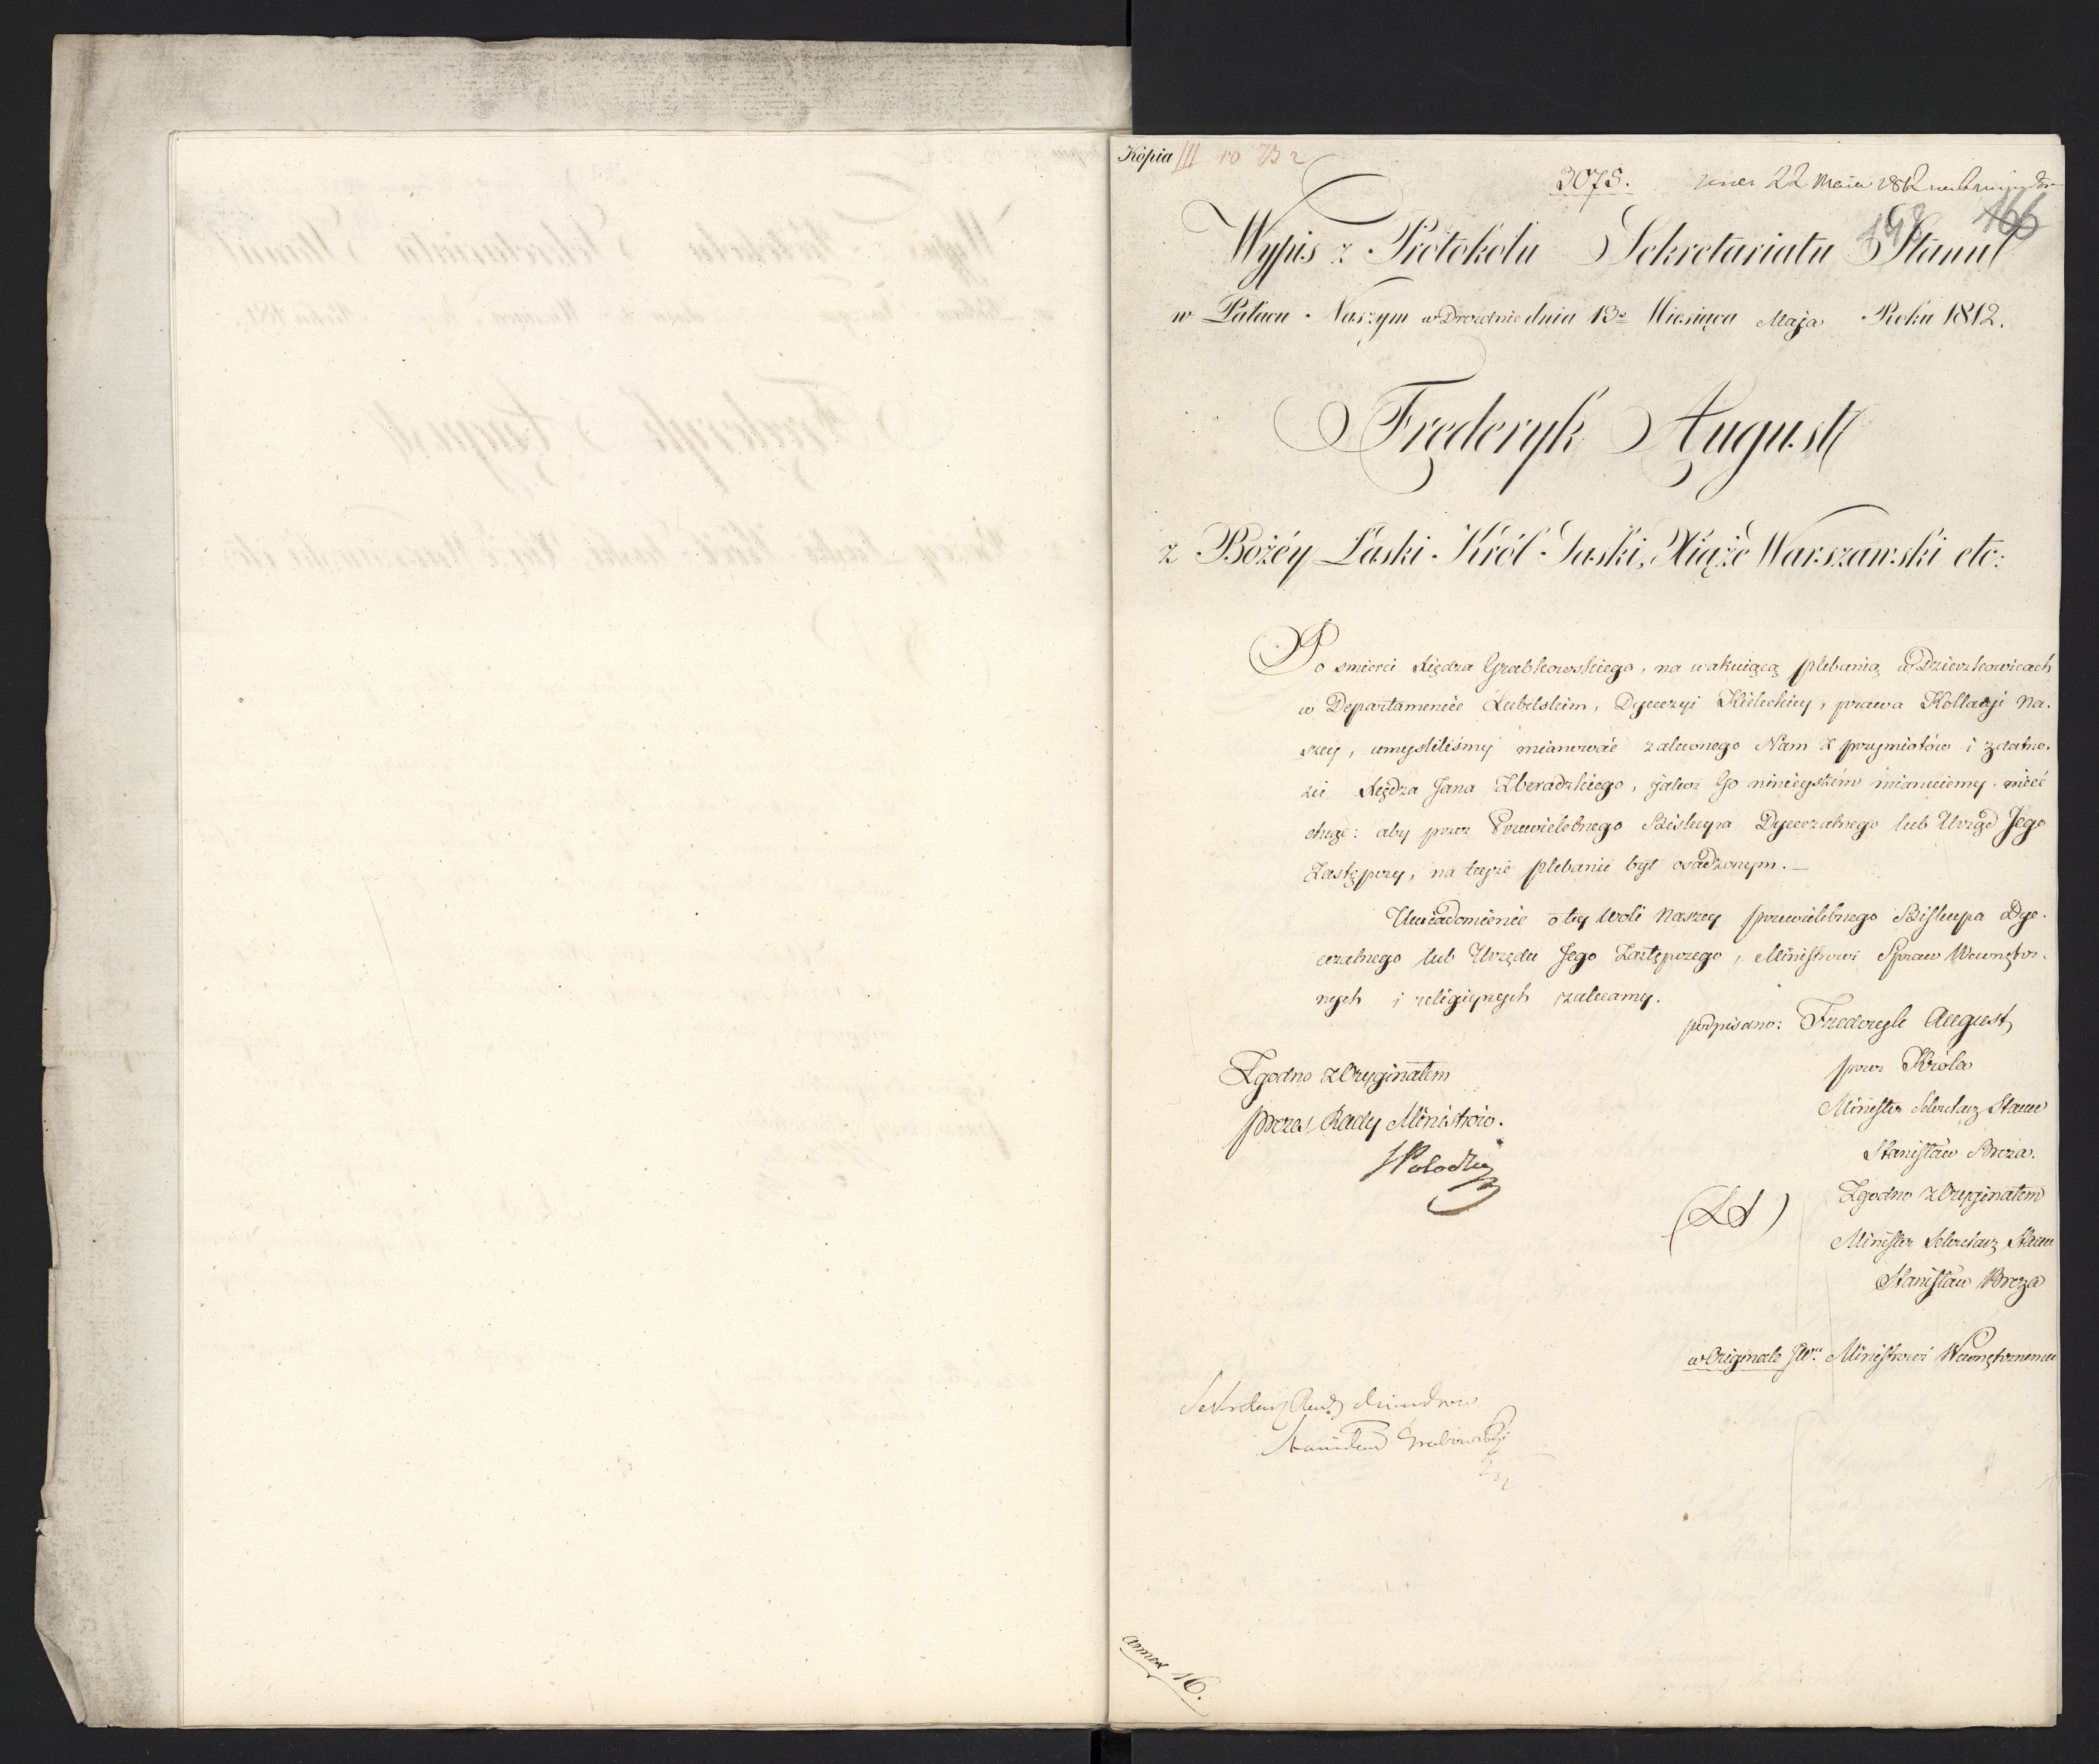 Kopia III 10
3075.
22 Maia 1812
148 166
Wypis z Protokołu Sekretariatu Stanu
w Pałacu Naszym w Dreznie dnia 13º Miesiąca Maja Roku 1812.
Fryderyk August
z Bożéy Łaski Król Saski, Xiąże Warszawski etc:
Po smierci Xiędza Grabkowskiego, na wakuiącą plebanią w Dzierzkowicach
w Departamencie Lubelskim, Dyecezyi Kieleckiey, prawa Kollacyi Na-
szey, umysliliśmy mianować zaleconego Nam z przymiotów i zdatno-
ści Xiędza Jana Zboradzkiego, jakoż Go ninieyszém mianuiemy. mieć
chcąc: aby przez Przewielebnego Biskupa Dyecezalnego lub Urząd Jego
Zastępczy, na teyże plebanii był osadzonym.—
Uwiadomienie o tey woli Naszey przewielebnego Biskupa Dye-
cezalnego lub Urzędu Jego Zastępczego, Ministrowi Spraw Wewnętrz-
nych i religiynych zalecamy.
podpisano: Frederyk August
przez Króla
Minister Sekretarz Stanu
Stanisław Breza.
Zgodno z Oryginałem
Prezes Rady Ministrów.
(LS)
Zgodno z Oryginałem
Minister Sekretarz Stanu
Stanisław Breza
w Originale JW. Ministrowi Wewnętrznemu
Sekretarz Rady Ministrów
Stanisław Grabowski
annex 16.